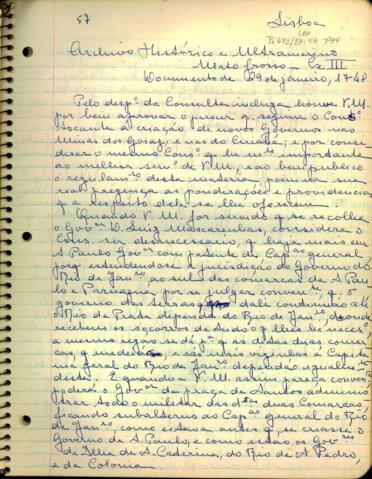 57
Lisboa
Archivo Histórico e Ultramarino
Mato Grosso - Cx. III
Documento de 29 de janeiro, 1748
Pelo desp.º da Consulta incluza houve V. M.
por bem aprovar o parecer q. seguiu o Cons.º
tocante à criação de novos Governos nas
Minas dos Goyaz, e nas do Cuiabá; e por consi-
derar o mesmo Cons.º q. he m.to importante
ao melhor serv.º de V. M., e ao bem publico
o regulam.to desta materia, poem na
real prezença as ponderações e providencias
q. a respeito dela se lhe oferecem.
Quando V. M. for servido q. se recolha
o Gov.or D. Luiz Mascarenhas, considera o
Cons. ser desnecessario, q. haja mais em
S. Paulo Gov.or com patente de Cap.am general
porq. estendendose a jurisdição do Governo do
Rio de Janr.º ao sul das comarcas de S. Pau-
lo e Parnagoá, por se julgar conven.te q. o
governo das terras q. dali continuão até
o Rio da Prata dependa do Rio de Janr.º, donde
recebem os socorros de tudo o q. lhes he neces.º
a mesma rezão se dá p.ª q. as ditas duas comar-
cas, q. medeão, e são mais vizinhas à Capita-
nia geral do Rio de Janr.º dependão igualm.te
desta. E quando a V. M. assim pareça conven.te
poderá o Gov.or da praça de Santos adminis-
trar todo o militar das d.tas duas Comarcas,
ficando subalterno ao Cap.am general do Rio
de Janr.º, como estava antes q. se criasse o
Governo de S. Paulo, e como estão os Gov.res
da Ilha de S. Caterina, do Rio de S. Pedro,
e da Colonia